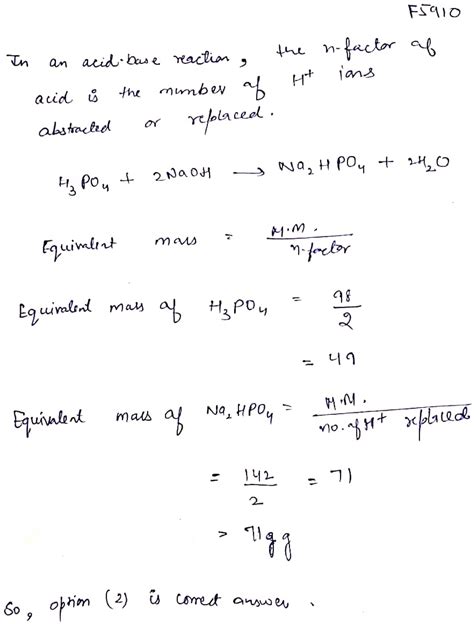 F5910
In an acid-base reaction, the n-factor of
acid is the number of H+ ions
abstracted or replaced.
H3PO4 + 2NaOH → Na2HPO4 + 2H2O
Equivalent mass = M.M. / n-factor
Equivalent mass of H3PO4 = 98/2
= 49
Equivalent mass of Na2HPO4 = M.M. / no. of H+ replaced
= 142/2 = 71
> 71g g
So, option (2) is correct answer.